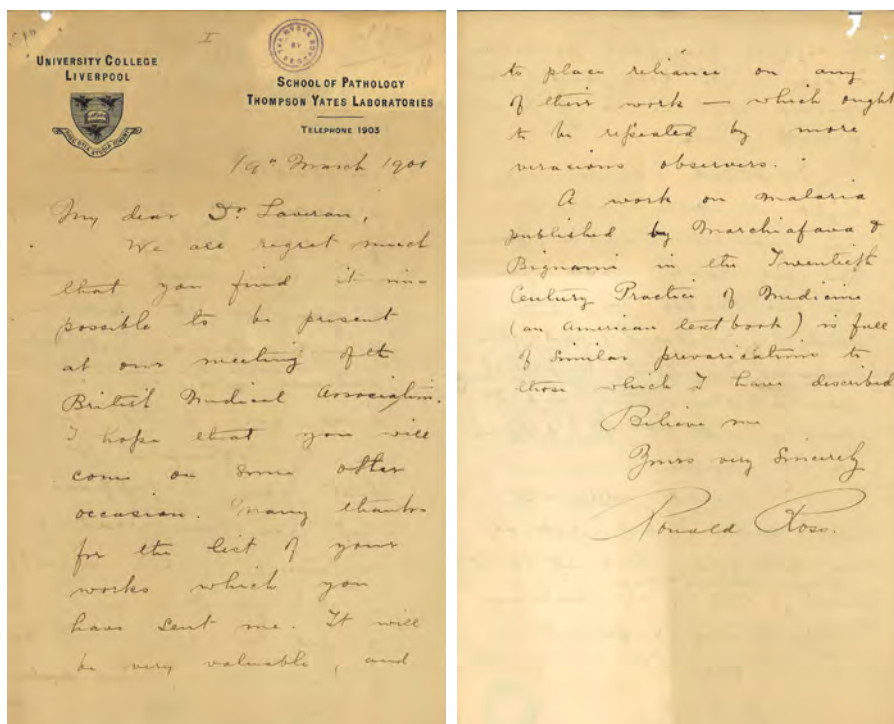 I
UNIVERSITY COLLEGE
LIVERPOOL
SCHOOL OF PATHOLOGY
THOMPSON YATES LABORATORIES
TELEPHONE 1903
19th March 1901
My dear Dr Laveran,
We all regret much
that you find it im-
possible to be present
at our meeting of the
British Medical Association.
I hope that you will
come on some other
occasion. Many thanks
for the list of your
works which you
have sent me. It will
be very valuable, and
to place reliance on any
of their work — which ought
to be repeated by more
veracious observers.
A work on malaria
published by Marchiafava &
Bignami in the Twentieth
Century Practice of Medicine
(an American textbook) is full
of similar prevarications to
those which I have described
Believe me
Yours very sincerely
Ronald Ross.